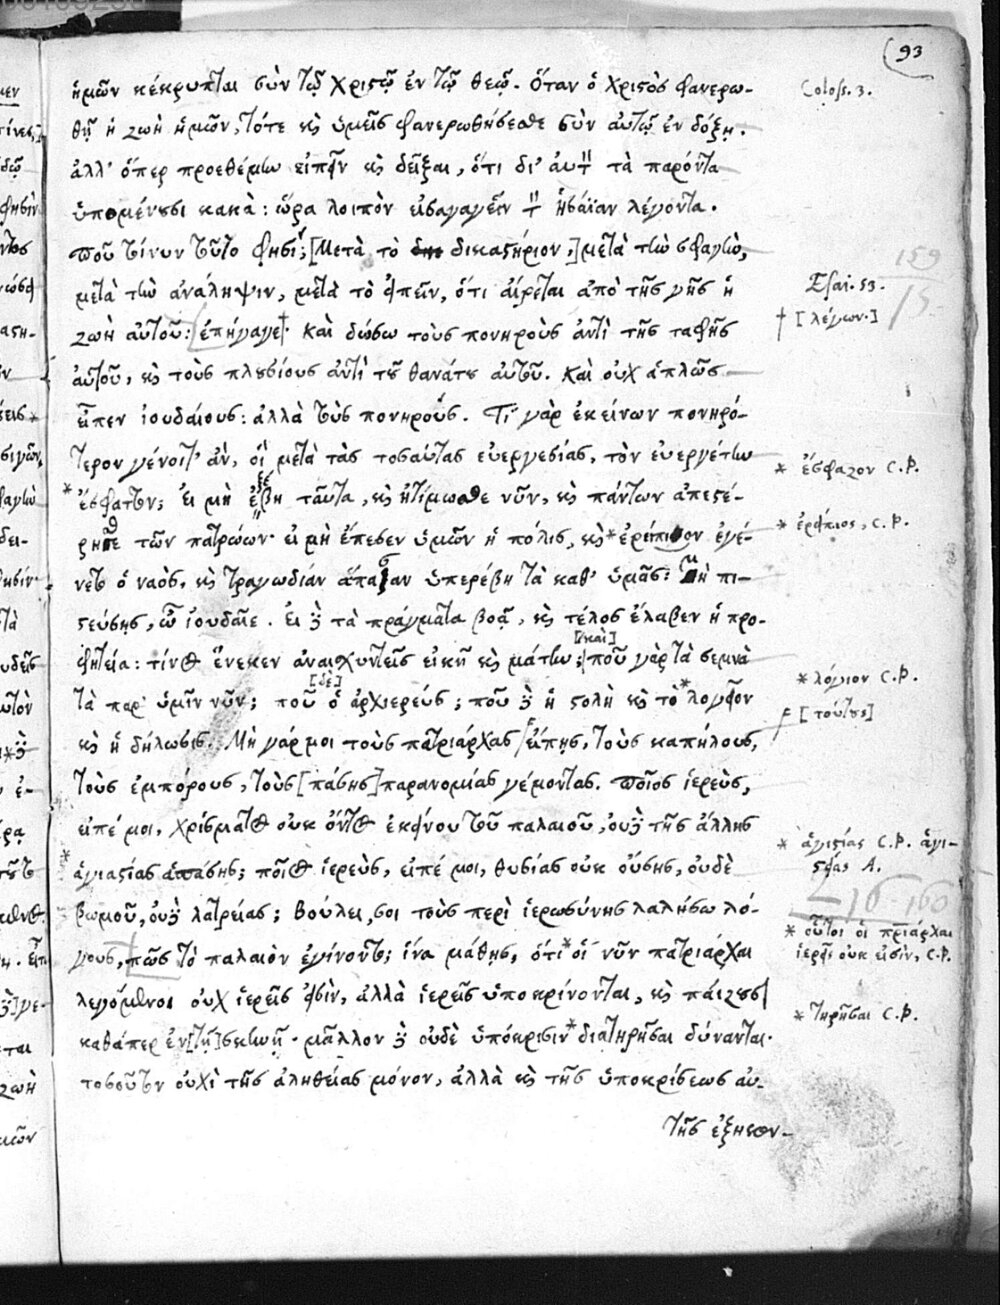 93
ἡμῶν κέκρυπται σὺν τῷ χριστῷ ἐν τῷ θεῷ. Ὅταν ὁ χριστὸς φανερω-
Coloss. 3.
θῇ ἡ ζωὴ ἡμῶν, τότε καὶ ὑμεῖς φανερωθήσεσθε σὺν αὐτῷ ἐν δόξῃ.
ἀλλ' ὅπερ προεθέμην εἰπεῖν καὶ δεῖξαι, ὅτι δι' αὐτὸν τὰ παρόντα
ὑπομένουσι κακὰ: ὥρα λοιπὸν εἰσαγαγεῖν τὸν ἡσάϊαν λέγοντα.
ποῦ τοίνυν τοῦτο φησί; [Μετὰ τὸ δικαστήριον,] μετὰ τὴν σφαγὴν,
159
μετὰ τὴν ἀνάληψιν, μετὰ τὸ εἰπεῖν, ὅτι αἴρεται ἀπὸ τῆς γῆς ἡ
Esai. 53.
ζωὴ αὐτοῦ: ἐπήγαγε† Καὶ δώσω τοὺς πονηροὺς ἀντὶ τῆς ταφῆς
† [λέγων.]
15
αὐτοῦ, καὶ τοὺς πλουσίους ἀντὶ τοῦ θανάτου αὐτοῦ. Καὶ οὐχ ἁπλῶς
εἶπεν ἰουδαίους: ἀλλὰ τοὺς πονηρούς. Τί γὰρ ἐκείνων πονηρό-
τερον γένοιτ' ἂν, οἳ μετὰ τὰς τοσαύτας εὐεργεσίας, τὸν εὐεργέτην
* ἔσφαζον C.P.
*ἔσφαττον; εἰ μὴ ἐξέβη ταῦτα, καὶ ἠτίμωσθε νῦν, καὶ πάντων ἀπεστέ-
ρησθε τῶν πατρώων· εἰ μὴ ἔπεσεν ὑμῶν ἡ πόλις, καὶ *ἐρείπιον ἐγέ-
* ἐρείπιος, C.P.
νετο ὁ ναὸς, καὶ τραγωδίαν ἅπασαν ὑπερέβη τὰ καθ' ὑμᾶς: Μὴ πι-
στεύσης, ὦ ἰουδαῖε. Εἰ δὲ τὰ πράγματα βοᾷ, καὶ τέλος ἔλαβεν ἡ προ-
φητεία: τίνος ἕνεκεν ἀναισχυντεῖς εἰκῆ καὶ μάτην; [καὶ] ποῦ γὰρ τὰ σεμνὰ
τὰ παρ' ὑμῖν νῦν; ποῦ [δὲ] ὁ ἀρχιερεύς; ποῦ δὲ ἡ στολὴ καὶ τὸ *λογεῖον
* λόγιον C.P.
καὶ ἡ δήλωσις. Μὴ γάρ μοι τοὺς πατριάρχας εἴπῃς, τοὺς καπήλους,
[τούτους]
τοὺς ἐμπόρους, τοὺς [πάσης] παρανομίας γέμοντας. ποῖος ἱερεὺς,
εἰπέ μοι, χρίσματος οὐκ ὄντος ἐκείνου τοῦ παλαιοῦ, οὐδὲ τῆς ἄλλης
*ἁγιασίας ἁπάσης; ποῖος ἱερεὺς, εἰπέ μοι, θυσίας οὐκ οὔσης, οὐδὲ
* ἁγιστίας C.P. ἁγι-
στείας A.
βωμοῦ, οὐδὲ λατρείας; Βούλει, σοι τοὺς περὶ ἱερωσύνης λαλήσω λό-
16 160
γους, πῶς τὸ παλαιὸν ἐγίνοντο; ἵνα μάθῃς, ὅτι *οἱ νῦν πατριάρχαι
* οὗτοι οἱ πατριάρχαι
ἱερεῖς οὐκ εἰσὶν, C.P.
λεγόμενοι οὐχ ἱερεῖς εἰσὶν, ἀλλὰ ἱερεῖς ὑποκρίνονται, καὶ παίζουσι
καθάπερ ἐν [τῇ] σκηνῇ· μᾶλλον δὲ οὐδὲ ὑπόκρισιν *διατηρῆσαι δύνανται·
* τηρῆσαι C.P.
τοσοῦτον οὐχὶ τῆς ἀληθείας μόνον, ἀλλὰ καὶ τῆς ὑποκρίσεως αὐ-
τῆς ἐξῆσαν-